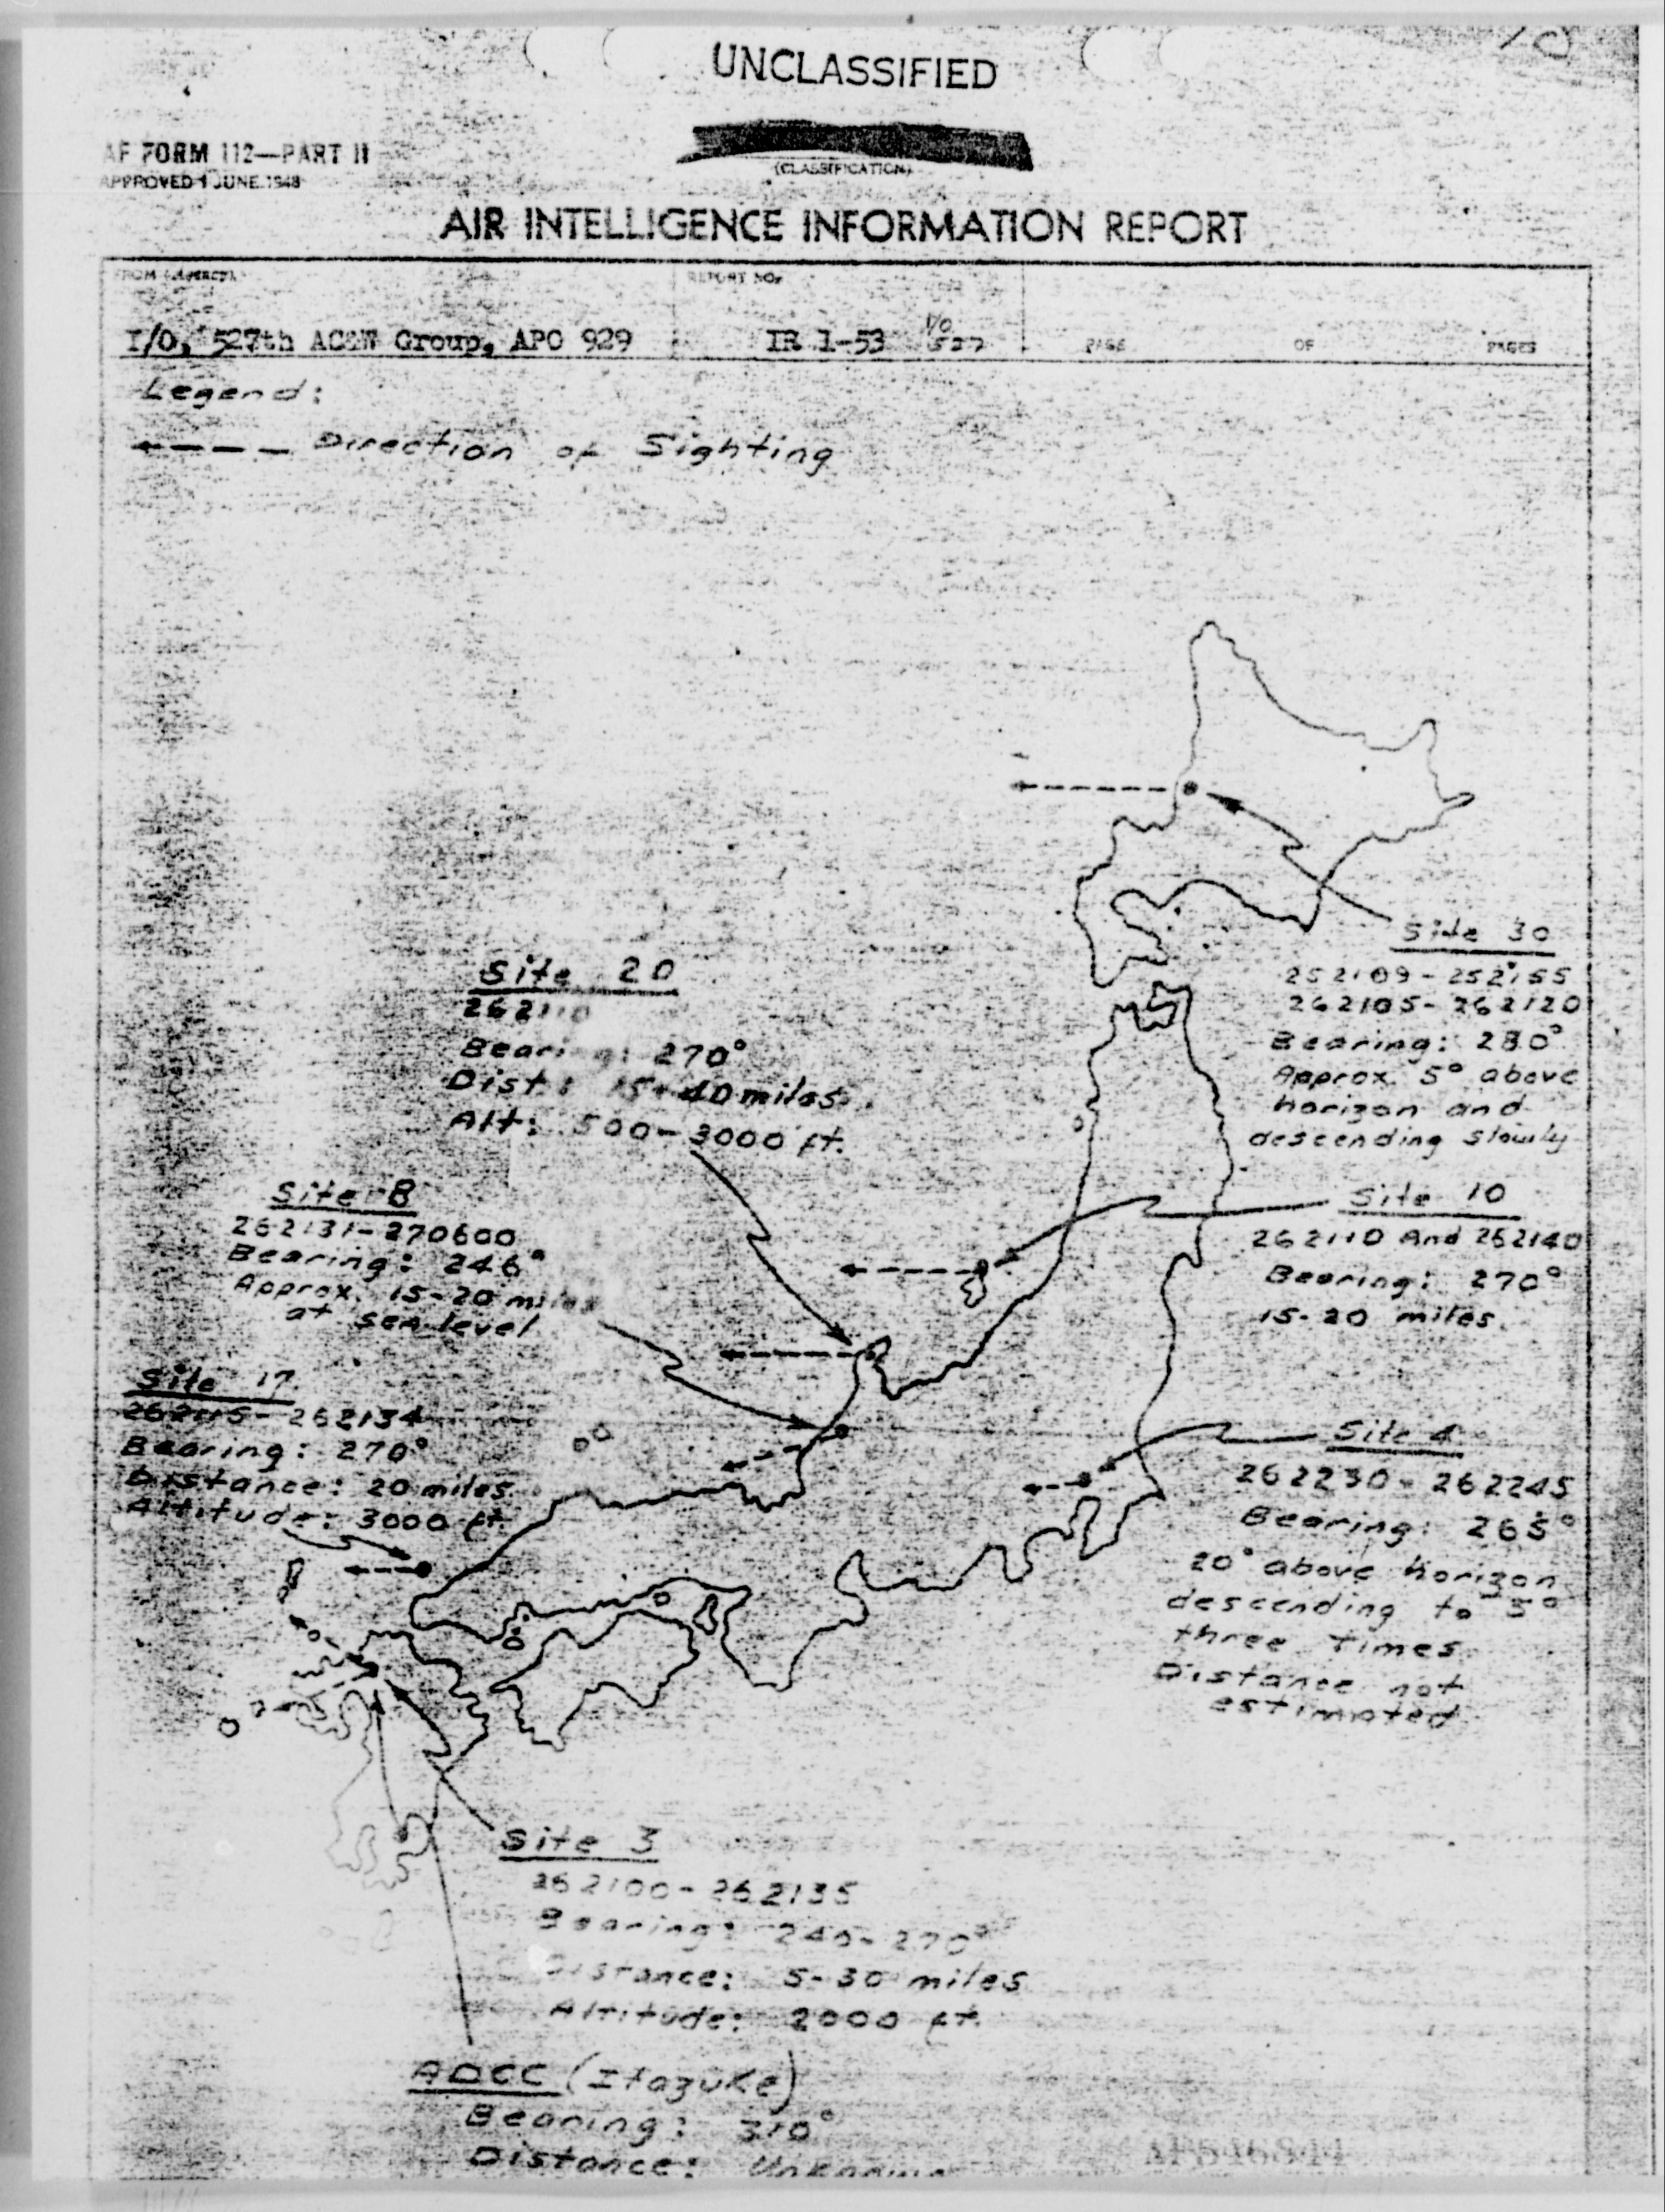 UNCLASSIFIED
AF FORM 112—PART II
APPROVED 1 JUNE 1948
(CLASSIFICATION)
AIR INTELLIGENCE INFORMATION REPORT
FROM (AGENCY)
REPORT NO.
I/O, 527th AC&W Group, APO 929
IR 1-53
I/O
527
PAGE OF PAGES
Legend:
Direction of Sighting
Site 30
252109-252155
262105-262120
Bearing: 280°
Approx. 5° above
horizon and
descending slowly
Site 20
262110
Bearing: 270°
Dist: 15-40 miles
Alt: 500-3000 ft.
Site 8
262131-270600
Bearing: 246°
Approx. 15-20 miles
at sea level
Site 10
262110 And 262140
Bearing: 270°
15-20 miles.
Site 17
262115-262134
Bearing: 270°
Distance: 20 miles
Altitude: 3000 ft.
Site 4
262230-262245
Bearing: 265°
20° above horizon
descending to 5°
three times
Distance not
estimated
Site 3
262100-262135
Bearing: 240-270°
Distance: 5-30 miles
Altitude: 2000 ft.
ADCC (Itazuke)
Bearing: 310°
Distance: Unknown